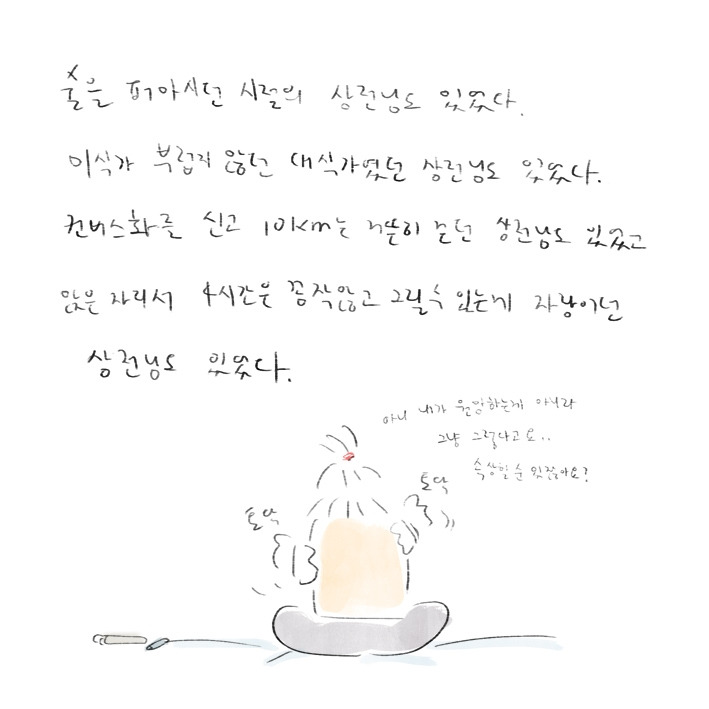 술을 퍼마시던 시절의 상전님도 있었다.
미식가 부럽지 않던 대식가였던 상전님도 있었다.
컨버스화를 신고 10km는 거뜬히 걷던 상전님도 있었고
앉은 자리서 4시간은 꼼짝않고 그릴 수 있는게 자랑이던
상전님도 있었다.
아니 내가 원망하는게 아니라
그냥 그렇다고요..
속상할 순 있잖아요?
토닥
토닥